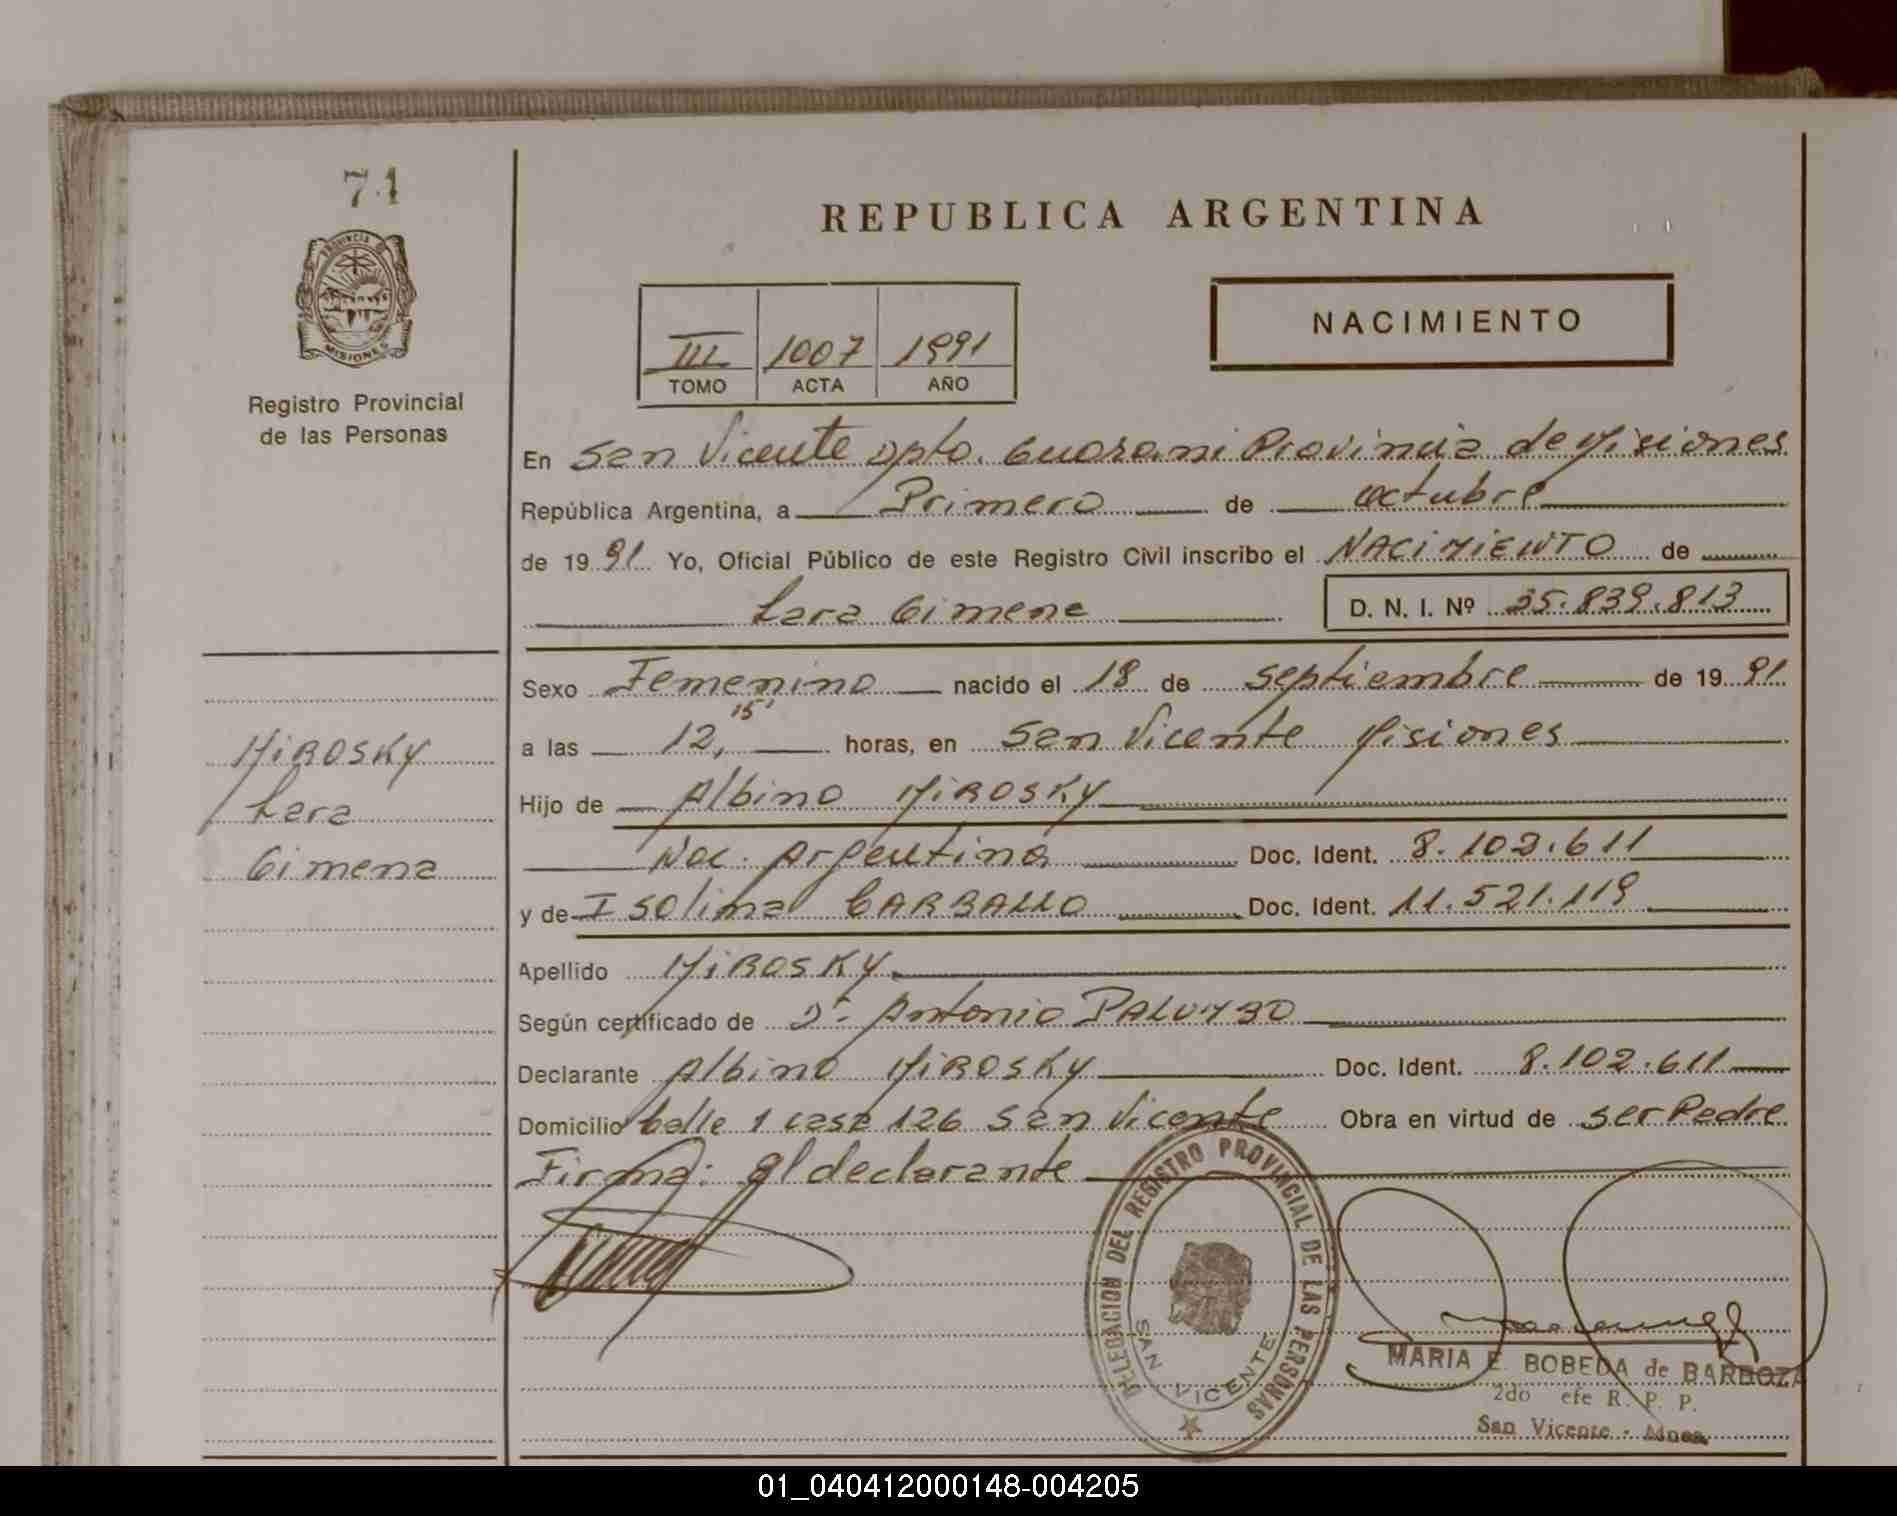 74
PROVINCIA DE
MISIONES
Registro Provincial
de las Personas
REPUBLICA ARGENTINA
III 1007 1991
TOMO ACTA AÑO
NACIMIENTO
En San Vicente Dpto. Guarani Provincia de Misiones
República Argentina, a Primero de octubre
de 1991 Yo, Oficial Público de este Registro Civil inscribo el NACIMIENTO de
Lara Gimena D. N. I. Nº 35.839.813
Sexo Femenino nacido el 18 de septiembre de 1991
a las 12,15' horas, en San Vicente Misiones
Hijo de Albino MIROSKY
Nac. Argentina Doc. Ident. 8.102.611
y de Isolina CARBALLO Doc. Ident. 11.521.119
Apellido MIROSKY
Según certificado de Dr. Antonio PALUMBO
Declarante Albino MIROSKY Doc. Ident. 8.102.611
Domicilio Calle 1 casa 126 San Vicente Obra en virtud de ser Padre
Firma: el declarante
MIROSKY
Lara
Gimena
DELEGACION DEL REGISTRO PROVINCIAL DE LAS PERSONAS
SAN VICENTE
MARIA E. BOBEDA de BARBOZA
2do efe R. P. P.
San Vicente - Mnes.
01_040412000148-004205